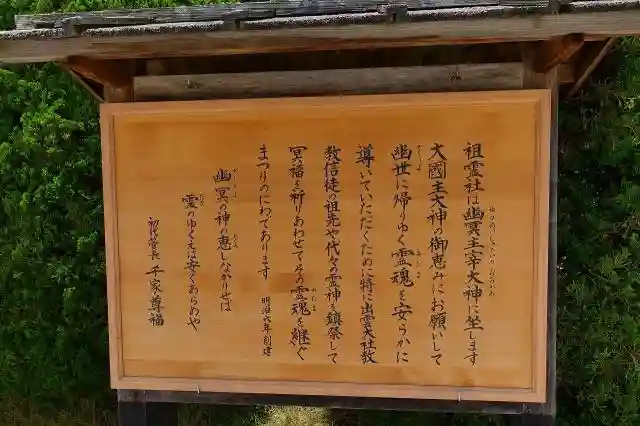 祖霊社は幽冥主宰大神に坐します
大國主大神の御恵みにお願いして
幽世に帰りゆく霊魂を安らかに
導いていただくために特に出雲大社教
教信徒の祖先や代々の霊神を鎮祭して
冥福を祈りあわせてその霊魂を継ぐ
まつりのにわであります
明治六年創建
幽冥の神の恵しなかりせば
霊のゆくえは安くあらめや
初代管長 千家尊福